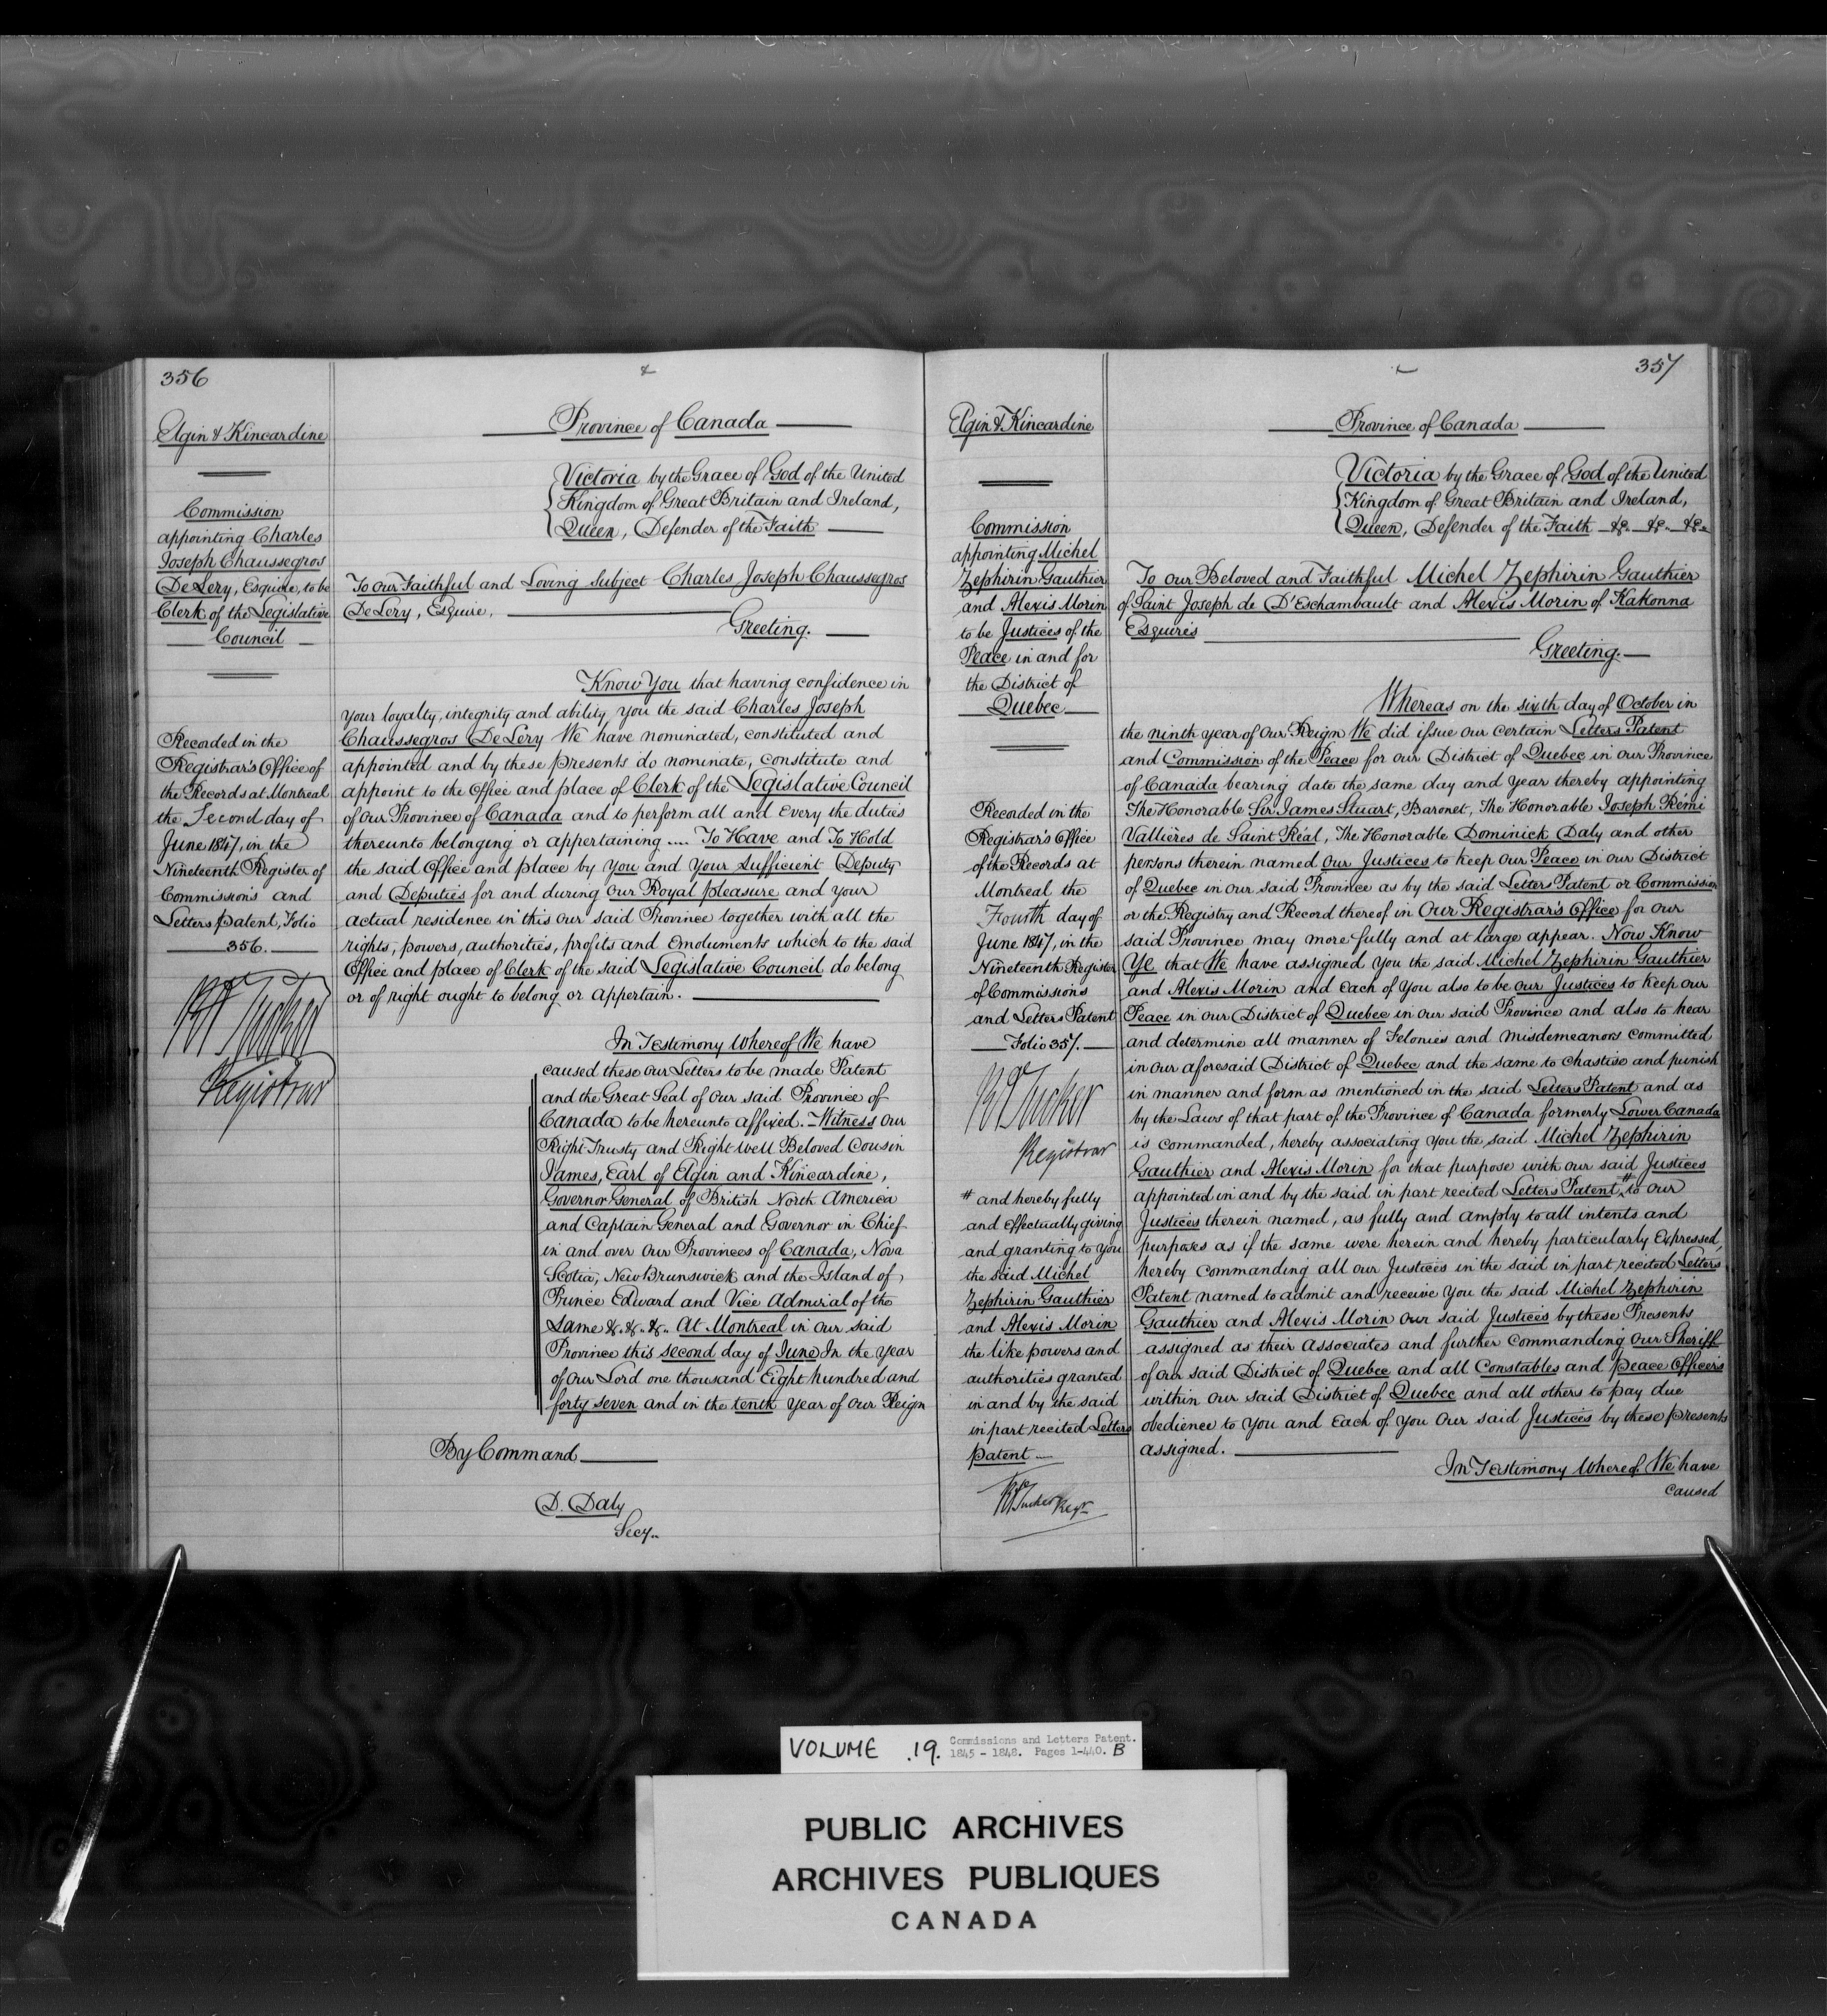 356
Elgin & Kincardine
Commission
appointing Charles
Joseph Chaussegros
DeLery, Esquire, to be
Clerk of the Legislative
Council
Recorded in the
Registrar's Office of
the Records at Montreal
the Second day of
June 1847, in the
Nineteenth Register of
Commissions and
Letters patent, Folio
356.
RA Tucker
Registrar
Province of Canada
Victoria by the Grace of God of the United
Kingdom of Great Britain and Ireland,
Queen, Defender of the Faith
To Our Faithful and Loving Subject Charles Joseph Chaussegros
DeLery, Esquire,
Greeting.
Know You that having confidence in
your loyalty, integrity and ability, you the said Charles Joseph
Chaussegros DeLery We have nominated, constituted and
appointed and by these presents do nominate, constitute and
appoint to the Office and place of Clerk of the Legislative Council
of Our Province of Canada and to perform all and every the duties
thereunto belonging or appertaining .... To Have and To Hold
the said Office and place by you and your sufficient Deputy
and Deputies for and during Our Royal pleasure and your
actual residence in this our said Province together with all the
rights, powers, authorities, profits and emoluments which to the said
Office and place of Clerk of the said Legislative Council do belong
or of right ought to belong or appertain.
In Testimony Whereof We have
caused these our Letters to be made Patent
and the Great Seal of Our said Province of
Canada to be hereunto affixed. Witness our
Right Trusty and Right Well Beloved Cousin
James, Earl of Elgin and Kincardine,
Governor General of British North America
and Captain General and Governor in Chief
in and over Our Provinces of Canada, Nova
Scotia, New Brunswick and the Island of
Prince Edward and Vice Admiral of the
Same &. &. &. At Montreal in our said
Province this second day of June In the year
of Our Lord one thousand Eight hundred and
forty seven and in the tenth year of our Reign
By Command
D. Daly
Secy.
357
Elgin & Kincardine
Commission
appointing Michel
Zephirin Gauthier
and Alexis Morin
to be Justices of the
Peace in and for
the District of
Quebec
Recorded in the
Registrar's Office
of the Records at
Montreal the
Fourth day of
June 1847, in the
Nineteenth Register
of Commissions
and Letters Patent
Folio 357.
RA Tucker
Registrar
# and hereby fully
and effectually giving
and granting to you
the said Michel
Zephirin Gauthier
and Alexis Morin
the like powers and
authorities granted
in and by the said
in part recited Letters
patent
RA Tucker Regr
Province of Canada
Victoria by the Grace of God of the United
Kingdom of Great Britain and Ireland,
Queen, Defender of the Faith &c. &c. &c.
To Our Beloved and Faithful Michel Zephirin Gauthier
of Saint Joseph de D'Eschambault and Alexis Morin of Kakonna
Esquires
Greeting.
Whereas on the sixth day of October in
the ninth year of Our Reign We did issue our certain Letters Patent
and Commission of the Peace for our District of Quebec in our Province
of Canada bearing date the same day and year thereby appointing
The Honorable Sir James Stuart, Baronet, The Honorable Joseph Rémi
Vallières de Saint Réal, The Honorable Dominick Daly and other
persons therein named Our Justices to keep Our Peace in our District
of Quebec in our said Province as by the said Letters Patent or Commission
or the Registry and Record thereof in Our Registrar's Office for Our
said Province may more fully and at large appear. Now Know
Ye that We have assigned you the said Michel Zephirin Gauthier
and Alexis Morin and each of you also to be our Justices to keep our
Peace in our District of Quebec in our said Province and also to hear
and determine all manner of Felonies and misdemeanors committed
in our aforesaid District of Quebec and the same to chastise and punish
in manner and form as mentioned in the said Letters Patent and as
by the Laws of that part of the Province of Canada formerly Lower Canada
is commanded, hereby associating you the said Michel Zephirin
Gauthier and Alexis Morin for that purpose with our said Justices
appointed in and by the said in part recited Letters Patent # to our
Justices therein named, as fully and amply to all intents and
purposes as if the same were herein and hereby particularly Expressed,
hereby commanding all our Justices in the said in part recited Letters
Patent named to admit and receive you the said Michel Zephirin
Gauthier and Alexis Morin our said Justices by these Presents
assigned as their associates and further commanding our Sheriff
of our said District of Quebec and all Constables and peace Officers
within our said District of Quebec and all others to pay due
obedience to you and each of you our said Justices by these presents
assigned.
In Testimony Whereof We have
caused
VOLUME 19. Commissions and Letters Patent.
1845 - 1848. Pages 1-440. B
PUBLIC ARCHIVES
ARCHIVES PUBLIQUES
CANADA